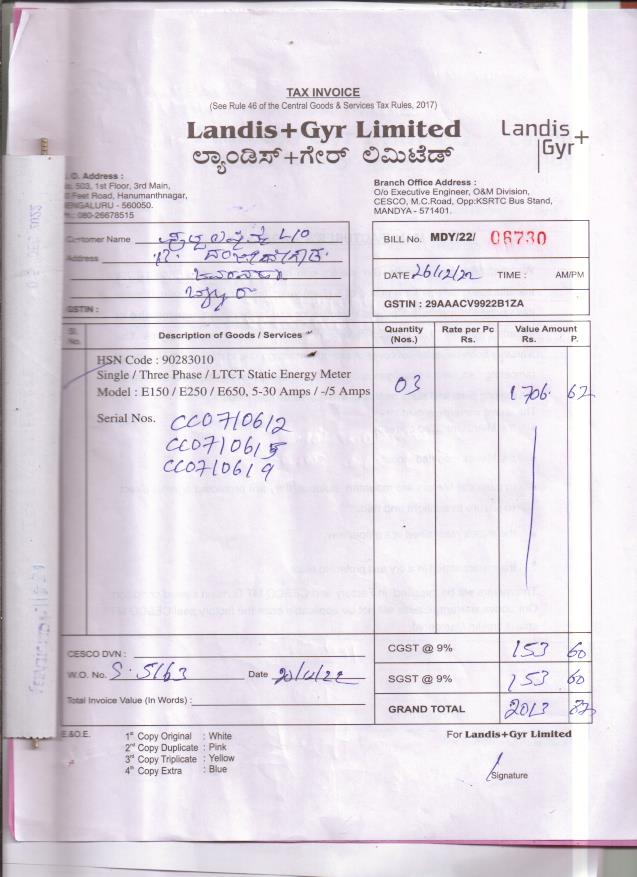 TAX INVOICE
(See Rule 46 of the Central Goods & Services Tax Rules, 2017)
Landis+Gyr Limited
Landis+
Gyr
ಲ್ಯಾಂಡಿಸ್+ಗೇರ್ ಲಿಮಿಟೆಡ್
Address :
503, 1st Floor, 3rd Main,
Feet Road, Hanumanthnagar,
BENGALURU - 560050.
: 080-26678515
Branch Office Address :
O/o Executive Engineer, O&M Division,
CESCO, M.C.Road, Opp:KSRTC Bus Stand,
MANDYA - 571401.
Customer Name
Address
GSTIN :
BILL No. MDY/22/ 06730
DATE 26/12/22 TIME : AM/PM
GSTIN : 29AAACV9922B1ZA
Sl. No. Description of Goods / Services Quantity (Nos.) Rate per Pc Rs. Value Amount Rs. P.
HSN Code : 90283010
Single / Three Phase / LTCT Static Energy Meter
Model : E150 / E250 / E650, 5-30 Amps / -/5 Amps 03 1706. 62
Serial Nos. CC0710612
CC0710615
CC0710619
CESCO DVN :
CGST @ 9% 153 60
W.O. No. S. 5163 Date
SGST @ 9% 153 60
Total Invoice Value (In Words) :
GRAND TOTAL 2013
E.&O.E.
1st Copy Original : White
2nd Copy Duplicate : Pink
3rd Copy Triplicate : Yellow
4th Copy Extra : Blue
For Landis+Gyr Limited
Signature